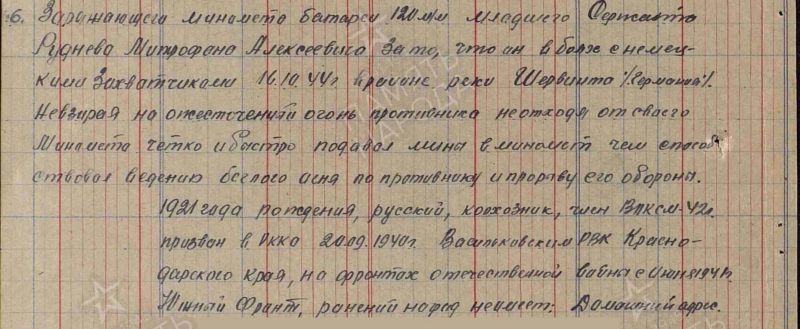 6. Заряжающего миномета батареи 120 м/м младшего Сержанта
Руднева Митрофана Алексеевича За то, что он в боях с немец-
кими Захватчиками 16.10.44г в районе реки Шервинта /Германия/.
Невзирая на ожесточенный огонь противника не отходя от своего
Миномета четко и быстро подавал мины в миномет чем способ
ствовал ведению беглого огня по противнику и прорыву его обороны.
1921 года рождения, русский, колхозник, член ВЛКСМ-42г.
призван в РККА 20.09.1940г. Васильковским РВК Красно-
дарского края, на фронтах отечественной войны с июня 1941г.
Южный Фронт, ранений на фронте не имеет: Домашний адрес.
ПАМЯТЬ
НАРОДА